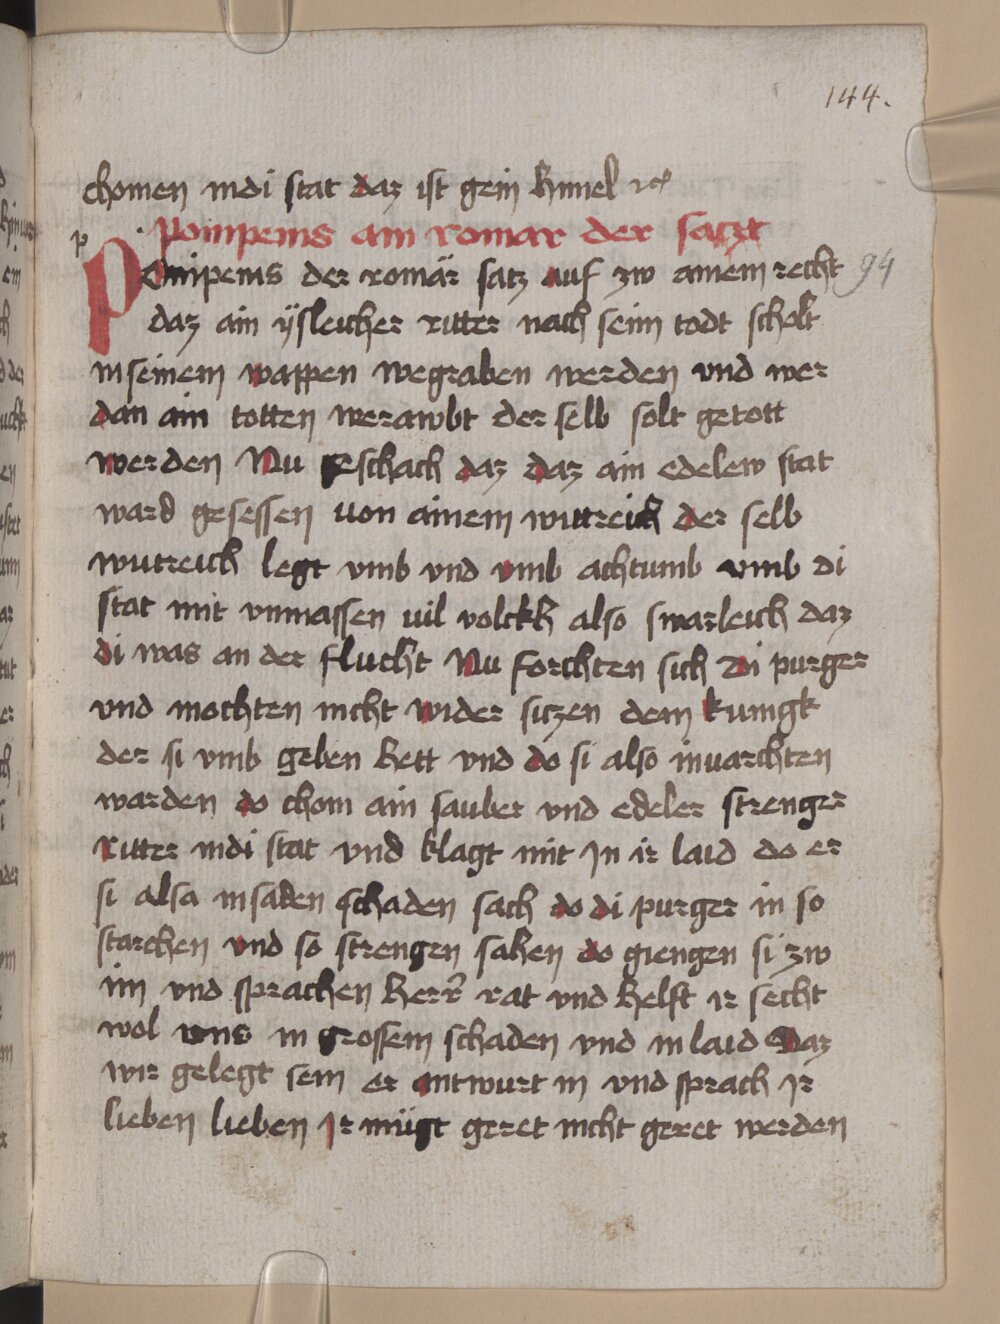 144.
chomen indi stat daz ist gein himel etc
Pompeius ain romar der saczt
p
Pompeius der romär satz auf zw ainem recht 94
daz ain ÿsleicher ritter nach seim todt scholt
in seinem wappen wegraben werden und wer
dan ain totten werawbt der selb solt getott
werden Nu geschach daz daz ain edelew stat
ward gesessen von ainem wuttreich der selb
wutreich legt vmb vnd vmb achtumb vmb di
stat mit vnmassen vil volckh also swarleich daz
di was an der flucht Nu forchten sich di purger
vnd mochten nicht wider siczen dem kunigk
der si vmb geben hett vnd do si also invarchten
warden do chom ain sauber vnd edeler strenger
ritter indi stat vnd klagt mit in ir laid do er
si alsa in schaden sach do di purger in so
starchen vnd so strengen sahen do giengen si zw
im vnd sprachen herr rat vnd helft ir secht
wol vns in grossem schaden vnd in laid daz
wir gelegt sein er antwurt in vnd sprach Ir
lieben lieben Ir mügt geret nicht geret werden